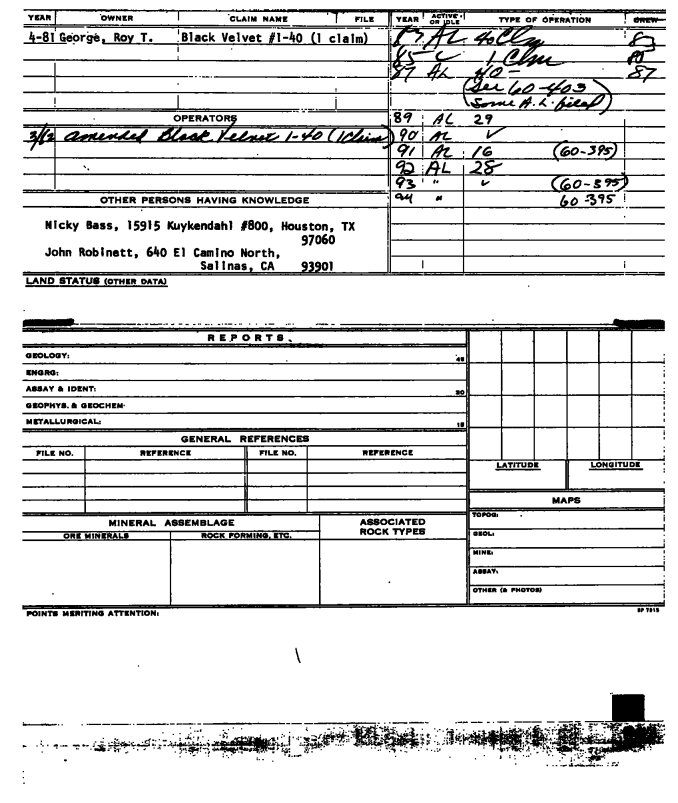 YEAR OWNER CLAIM NAME FILE
4-81 George, Roy T. Black Velvet #1-40 (1 claim)
OPERATORS
amended Black Velvet 1-40 (1 Claim)
OTHER PERSONS HAVING KNOWLEDGE
Nicky Bass, 15915 Kuykendahl #800, Houston, TX
97060
John Robinett, 640 El Camino North,
Salinas, CA 93901
LAND STATUS (OTHER DATA)
YEAR ACTIVE OR IDLE TYPE OF OPERATION CREW
AL 40 Clm 83
85 ✓ 1 Clm
87 AL 40- 87
(See 60-403
Some A.L. filed)
89 AL 29
90 AL ✓
91 AL 16 (60-395)
92 AL 28
93 " ✓ (60-395)
94 " 60-395
REPORTS
GEOLOGY: 45
ENGRG:
ASSAY & IDENT: 30
GEOPHYS. & GEOCHEM-
METALLURGICAL: 15
GENERAL REFERENCES
FILE NO. REFERENCE FILE NO. REFERENCE
MINERAL ASSEMBLAGE
ORE MINERALS ROCK FORMING, ETC.
ASSOCIATED
ROCK TYPES
LATITUDE LONGITUDE
MAPS
TOPOG:
GEOL:
MINE:
ASSAY:
OTHER (& PHOTOS)
POINTS MERITING ATTENTION:
SP 7815